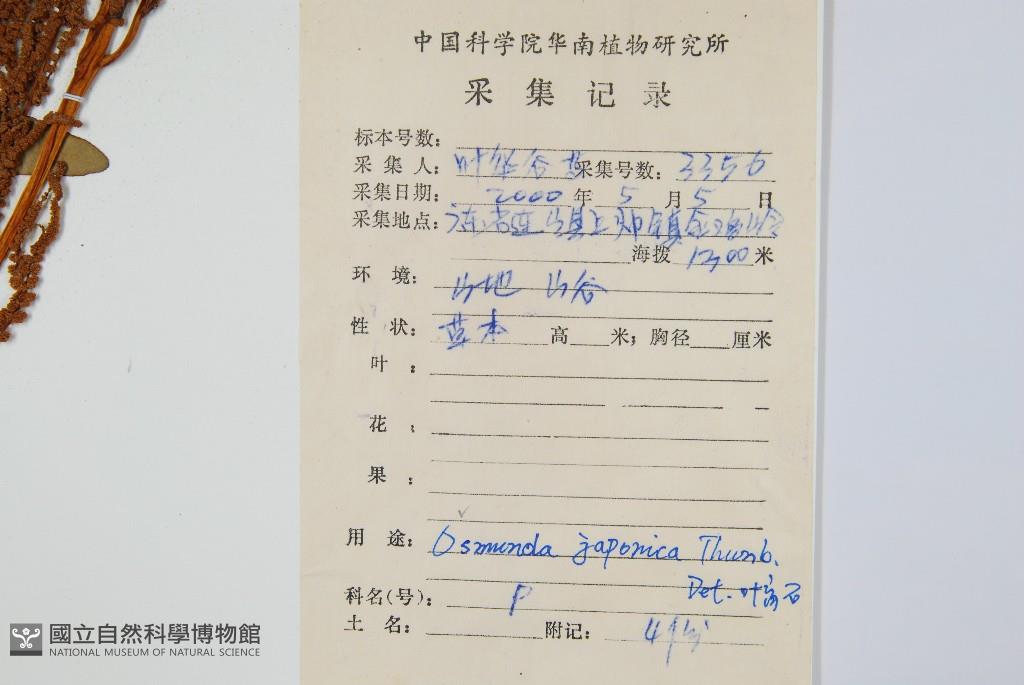 中国科学院华南植物研究所
采集记录
标本号数：
采集人：叶华谷 采集号数：3356
采集日期：2000年5月5日
采集地点：广东省连山县上帅镇
海拨 1200 米
环境：山地 山谷
性状：草本 高 米；胸径 厘米
叶：
花：
果：
用途：Osmunda japonica Thunb.
Det. 叶
科名(号)：P
土名： 附记：4份
國立自然科學博物館
NATIONAL MUSEUM OF NATURAL SCIENCE